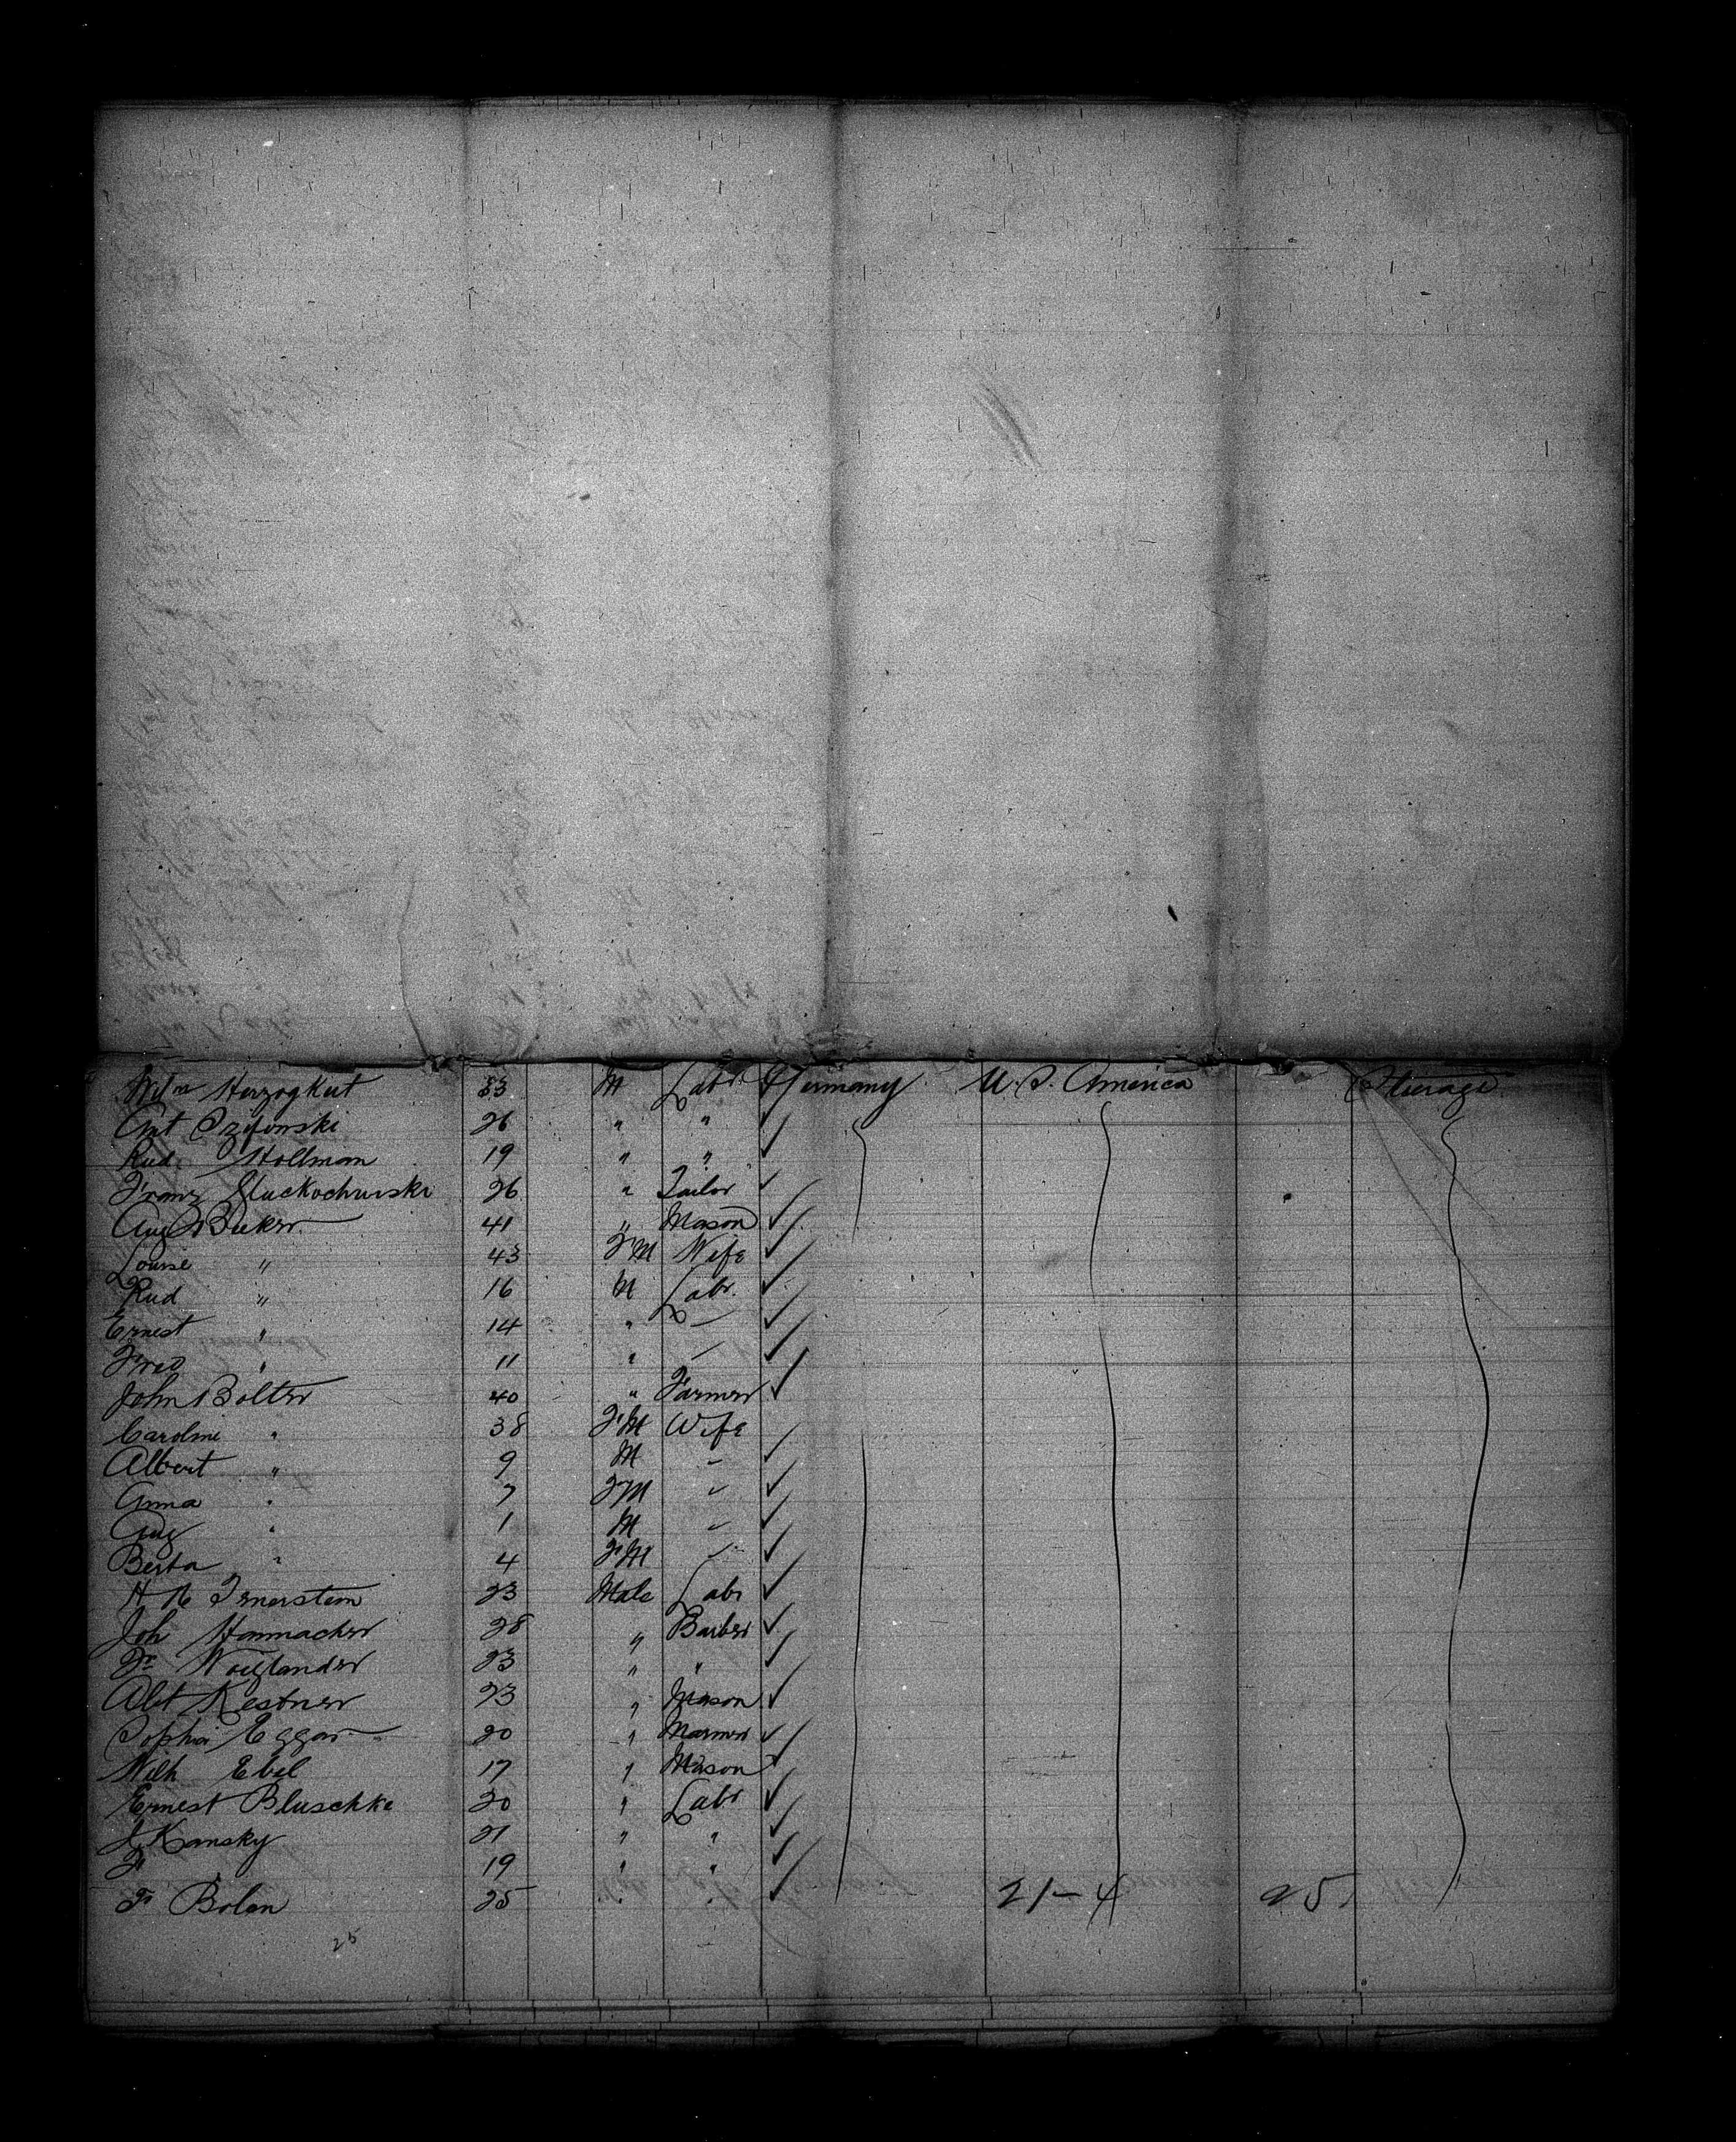 Wilm Herzogkut 33 M Labr. Germany U.S. America Steerage
Ant 26 " "
Rud Hollman 19 " "
Franz 26 " Tailor
Aug Buker 41 " Mason
Louise " 43 FM Wife
Rud " 16 M Labr.
Ernest " 14 " —
Fred " 11 " —
John Bolter 40 " Farmer
Caroline " 38 FM Wife
Albert " 9 M —
Anna " 7 FM
Aug " 1 M
Berta " 4 FM
H 23 Male Labr
Joh Hanmacher 28 " Barber
Fr Woiglander 23 " "
Albt Kestner 23 " Mason
Sophia Eggar 20 "
Wilh Ebel 17 " Mason
Ernest Bluschke 20 " Labr
J Kansky 21 " "
F 19 " "
F Bolen 25 " " 21–4 25
25